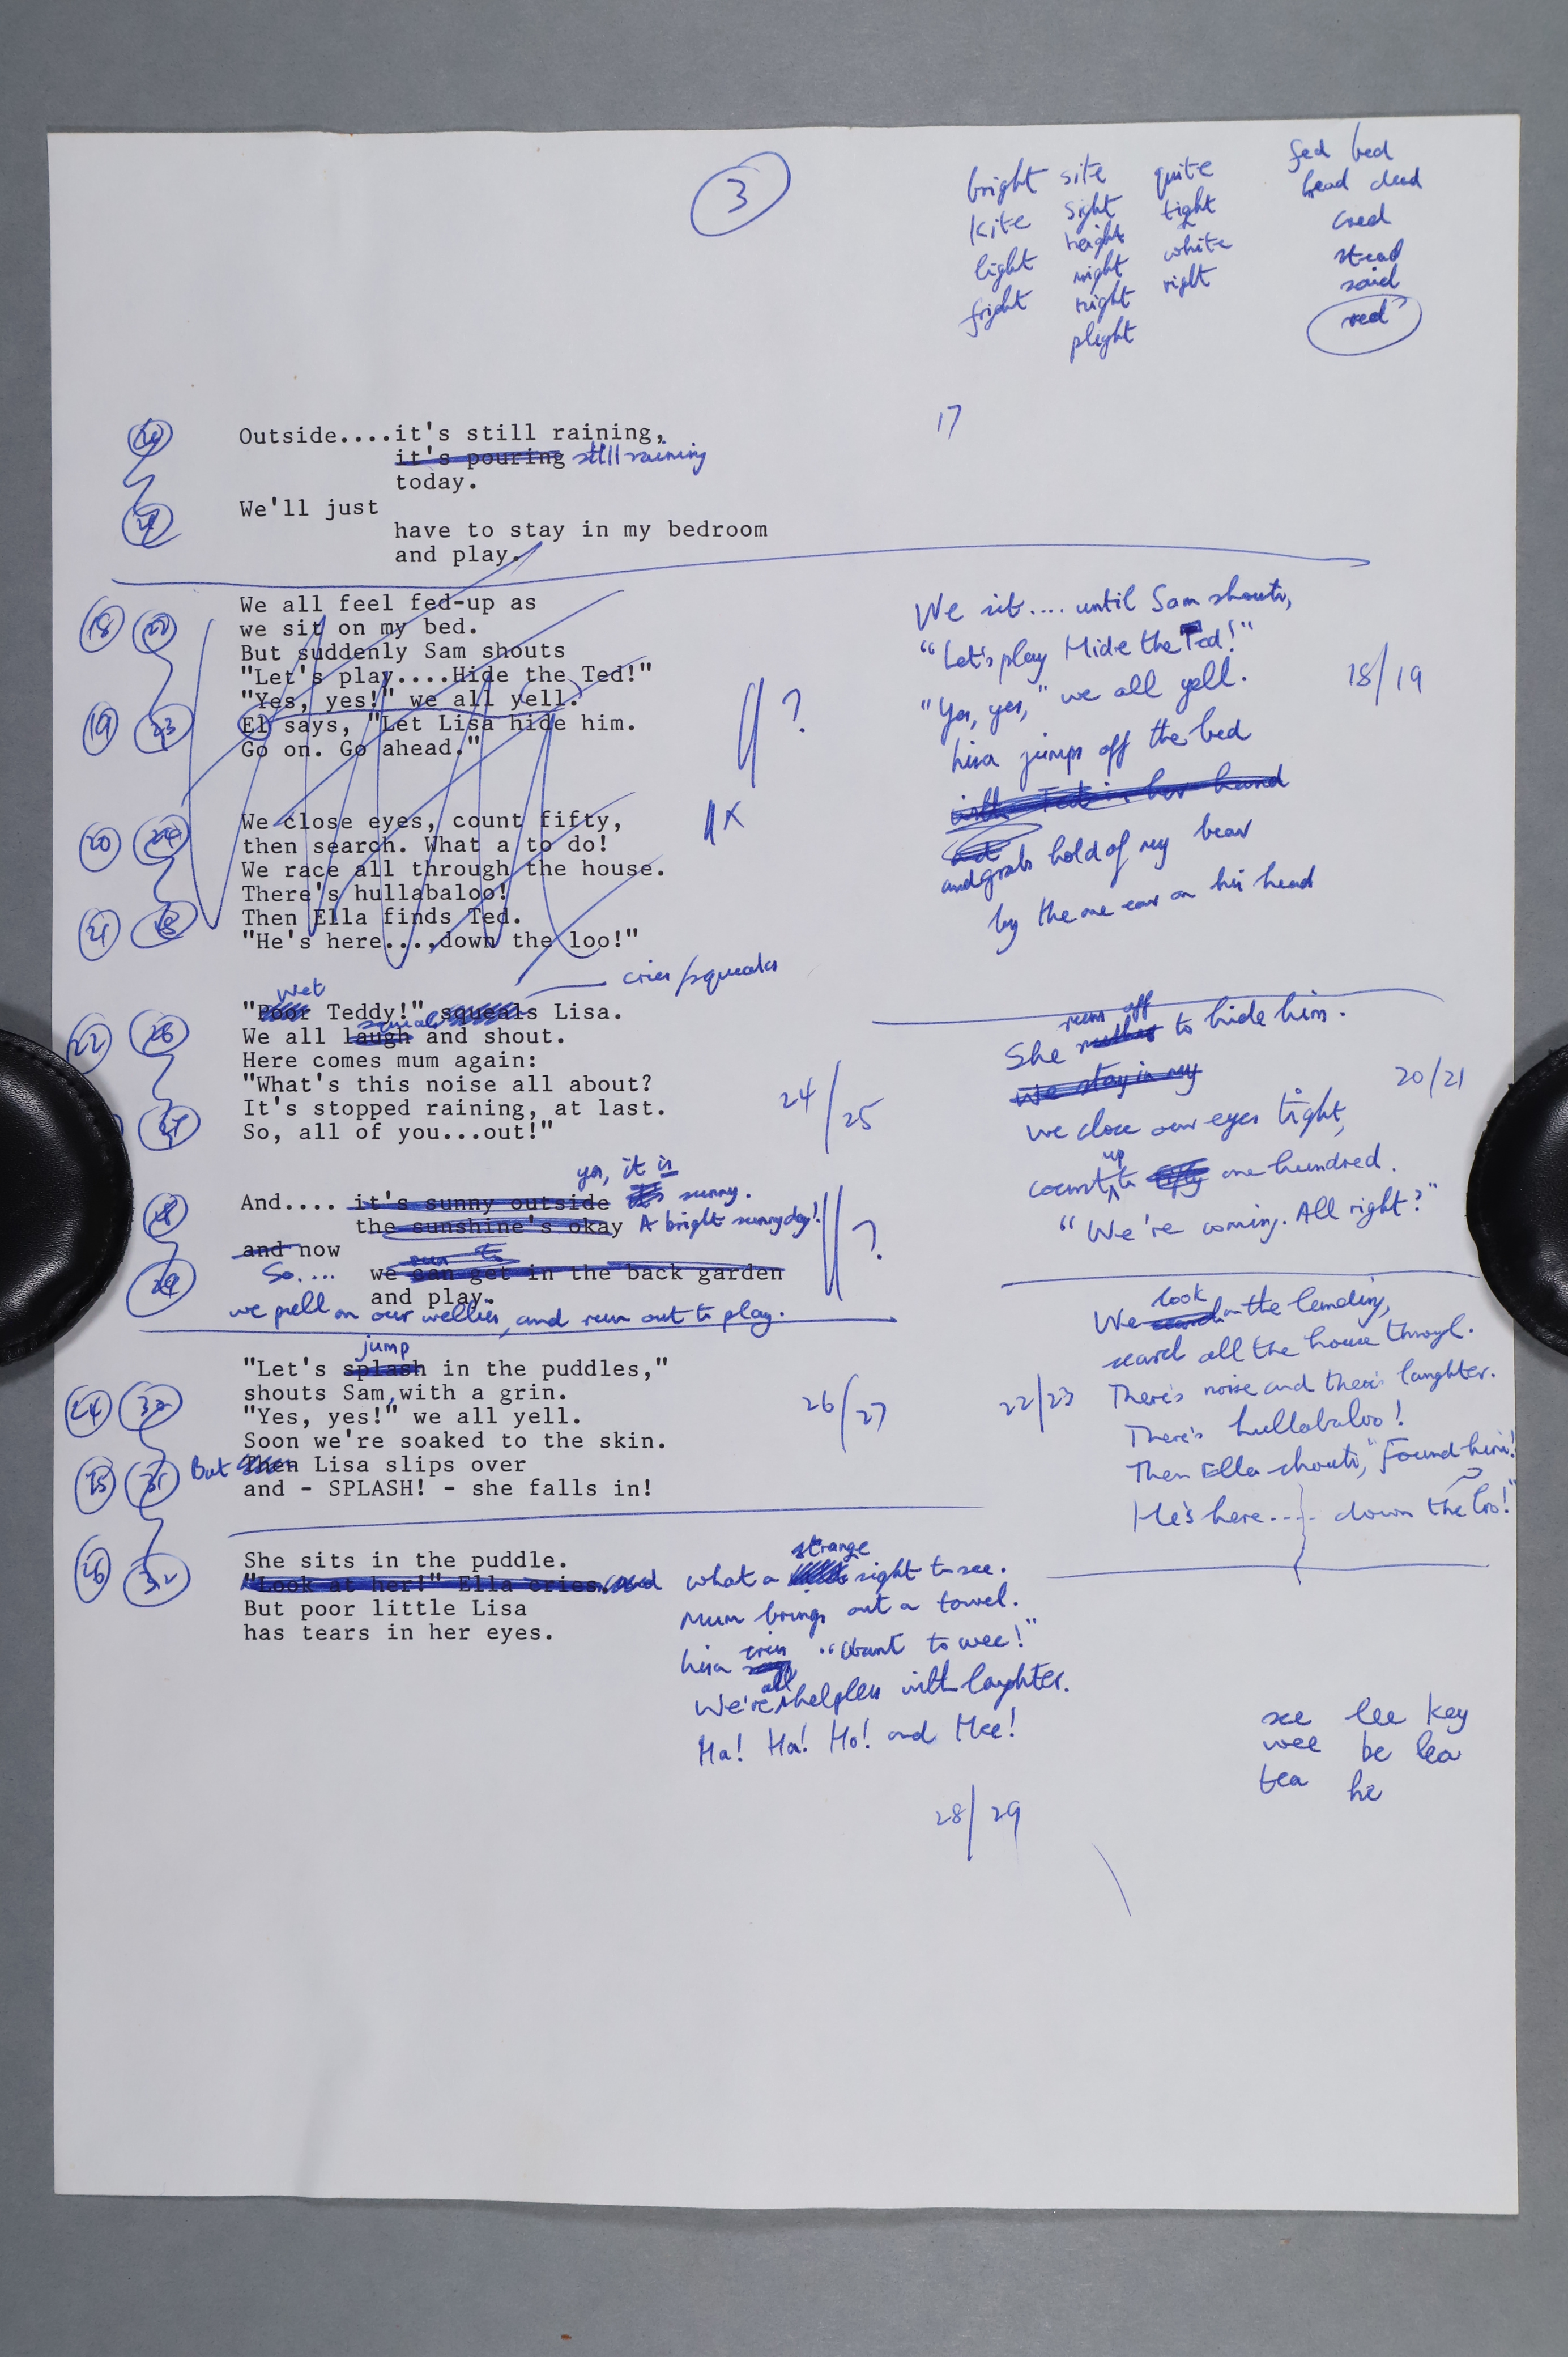 3
bright site quite
kite sight tight
light height white
fright might right
night
plight
fed bed
head dead
stead
said
red
17
Outside....it's still raining,
it's pouring still raining
today.
We'll just
have to stay in my bedroom
and play.
18
We all feel fed-up as
we sit on my bed.
But suddenly Sam shouts
"Let's play....Hide the Ted!"
"Yes, yes!" we all yell.
19 23
El says, "Let Lisa hide him.
Go on. Go ahead."
?
20
We close eyes, count fifty,
then search. What a to do!
We race all through the house.
There's hullabaloo!
21
Then Ella finds Ted.
"He's here....down the loo!"
X
We sit.... until Sam shouts,
"Let's play Hide the Ted!"
"Yes, yes," we all yell.
Lisa jumps off the bed
with Ted in her hand
and grabs hold of my bear
by the one ear on his head
18/19
cries/squeaks
Wet
"Poor Teddy!" squeals Lisa.
squeal
22 26
We all laugh and shout.
Here comes mum again:
"What's this noise all about?
It's stopped raining, at last.
27
So, all of you...out!"
24/25
runs off
She rushes to hide him.
We stay in my
we close our eyes tight,
up
count to fifty one hundred.
"We're coming. All right?"
20/21
yes, it is
And.... it's sunny outside it's sunny.
the sunshine's okay A bright sunny day!
and now
run to
So.... we can get in the back garden
29
and play.
we pull on our wellies, and run out to play.
?
look
We search on the landing,
search all the house through.
There's noise and there's laughter.
There's hullabaloo!
Then Ella shouts, "Found him!
He's here.... down the loo!"
22/23
jump
"Let's splash in the puddles,"
24 30
shouts Sam, with a grin.
"Yes, yes!" we all yell.
Soon we're soaked to the skin.
25 31
But Then Lisa slips over
and - SPLASH! - she falls in!
26/27
26 32
She sits in the puddle.
strange
"Look at her!" Ella cries. what a sight to see.
But poor little Lisa
has tears in her eyes.
Mum brings out a towel.
cries
Lisa says "Want to wee!"
all
We're helpless with laughter.
Ha! Ha! Ho! and Hee!
28/29
see lee key
wee be lea
tea he